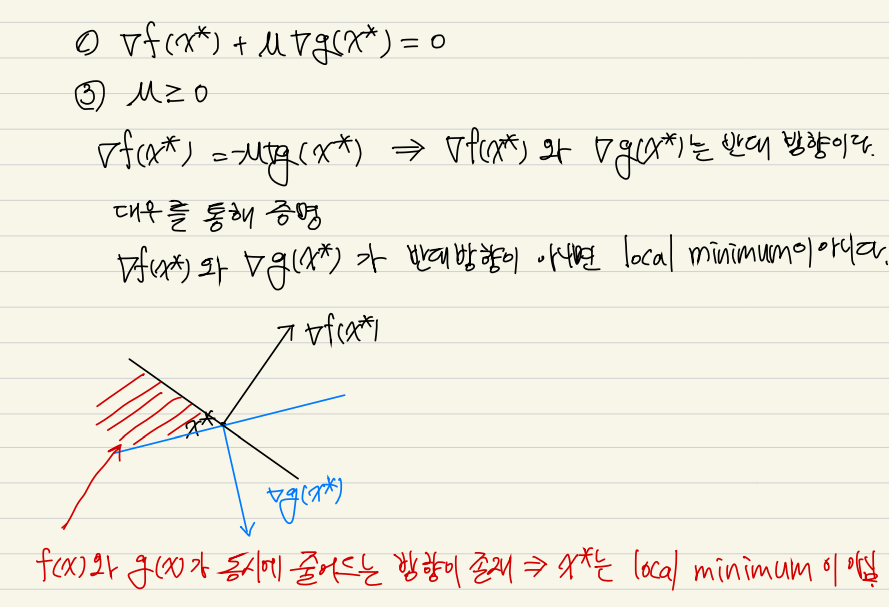 ① ∇f(x*) + μ∇g(x*) = 0
③ μ ≥ 0
∇f(x*) = -μ∇g(x*) ⇒ ∇f(x*) 와 ∇g(x*)는 반대 방향이다.
대우를 통해 증명
∇f(x*) 와 ∇g(x*) 가 반대방향이 아니면 local minimum이 아니다.
∇f(x*)
x*
∇g(x*)
f(x)와 g(x)가 동시에 줄어드는 방향이 존재 ⇒ x*는 local minimum이 아님